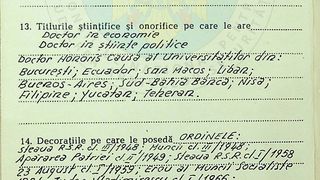 13. Titlurile științifice și onorifice pe care le are
Doctor în economie
Doctor în științe politice
Doctor Honoris Causa al Universităților din:
București; Ecuador; San Marcos; Liban,
Buenos-Aires; Sud-Bahia Blanca; Nisa;
Filipine; Yucatan; Teheran.
14. Decorațiile pe care le posedă ORDINELE:
Steaua R.S.R. cl. III/1948; Muncii cl. III/1948;
Apărarea Patriei cl. II/1949; Steaua R.S.R. cl. I/1958
23 August cl. I/1959; Erou al Muncii Socialiste